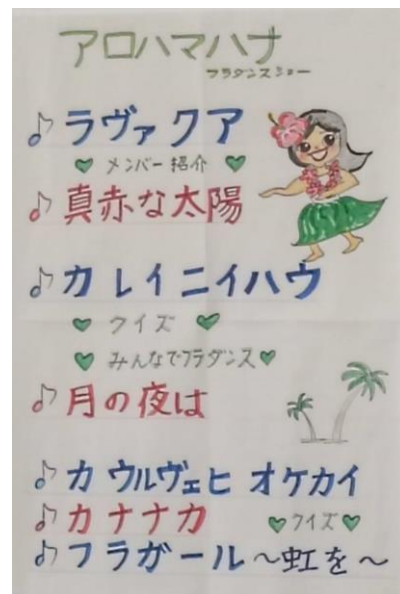 アロハマハナ
フラダンスショー
♪ラヴァクア
♥メンバー紹介♥
♪真赤な太陽
♪カレイニイハウ
♥クイズ♥
♥みんなでフラダンス♥
♪月の夜は
♪カウルヴェヒ オケカイ
♪カナナカ ♥クイズ♥
♪フラガール～虹を～